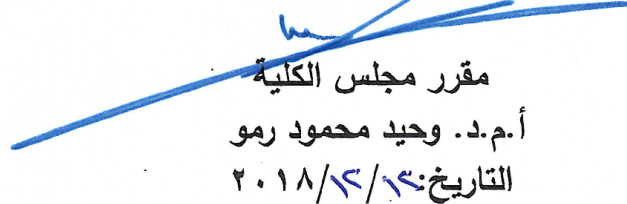 مقرر مجلس الكلية
أ.م.د. وحيد محمود رمو
التاريخ:١٣/١٢/٢٠١٨